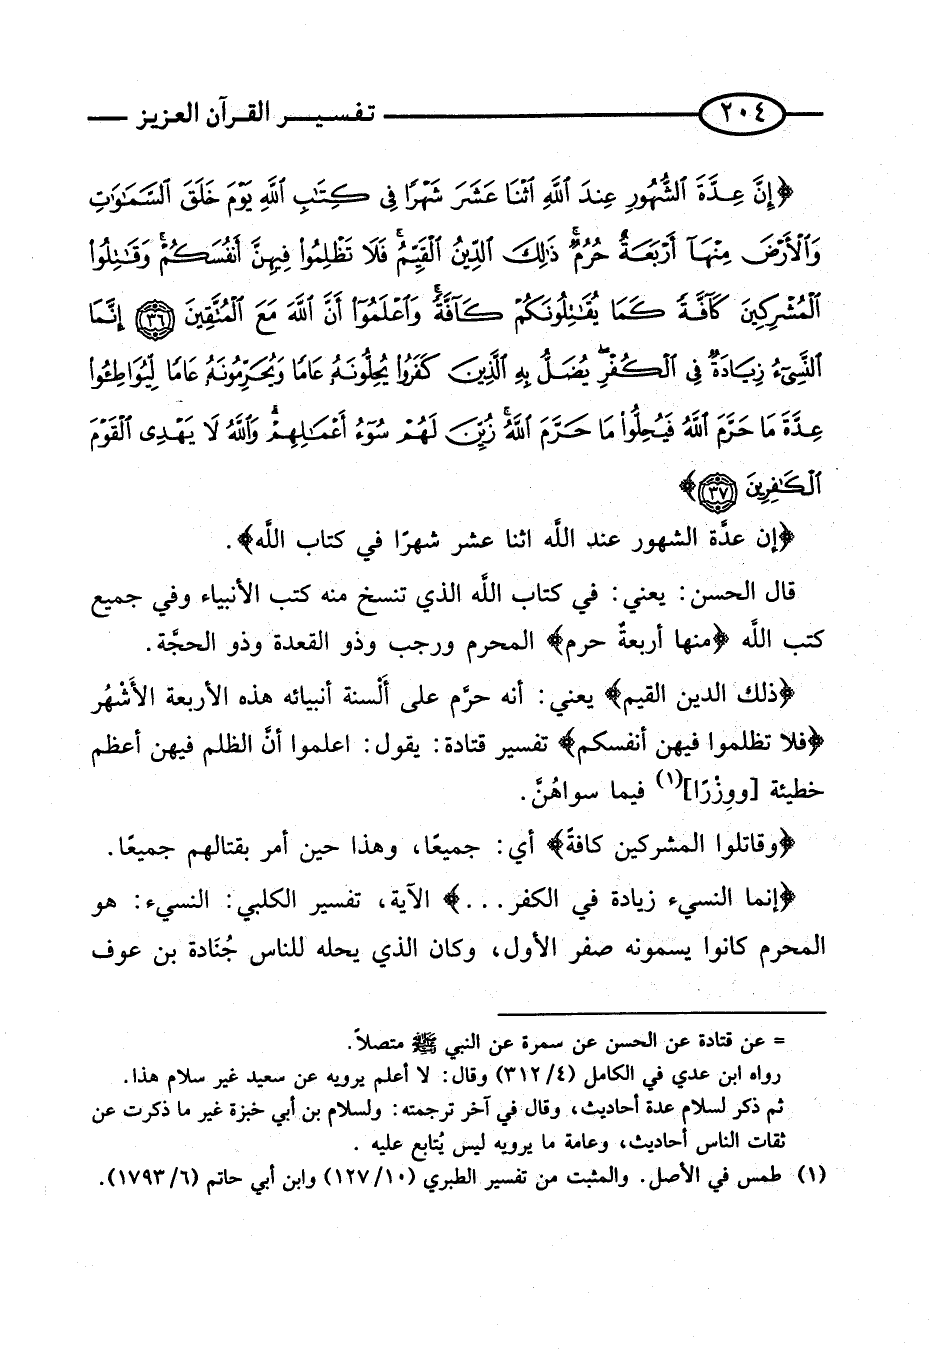 ٢٠٤ تفسير القرآن العزيز
﴿إِنَّ عِدَّةَ ٱلشُّهُورِ عِندَ ٱللَّهِ ٱثْنَا عَشَرَ شَهْرًا فِى كِتَٰبِ ٱللَّهِ يَوْمَ خَلَقَ ٱلسَّمَٰوَٰتِ
وَٱلْأَرْضَ مِنْهَآ أَرْبَعَةٌ حُرُمٌ ۚ ذَٰلِكَ ٱلدِّينُ ٱلْقَيِّمُ ۚ فَلَا تَظْلِمُوا۟ فِيهِنَّ أَنفُسَكُمْ ۚ وَقَٰتِلُوا۟
ٱلْمُشْرِكِينَ كَآفَّةً كَمَا يُقَٰتِلُونَكُمْ كَآفَّةً ۚ وَٱعْلَمُوٓا۟ أَنَّ ٱللَّهَ مَعَ ٱلْمُتَّقِينَ ٣٦ إِنَّمَا
ٱلنَّسِىٓءُ زِيَادَةٌ فِى ٱلْكُفْرِ ۖ يُضَلُّ بِهِ ٱلَّذِينَ كَفَرُوا۟ يُحِلُّونَهُۥ عَامًا وَيُحَرِّمُونَهُۥ عَامًا لِّيُوَاطِـُٔوا۟
عِدَّةَ مَا حَرَّمَ ٱللَّهُ فَيُحِلُّوا۟ مَا حَرَّمَ ٱللَّهُ ۚ زُيِّنَ لَهُمْ سُوٓءُ أَعْمَٰلِهِمْ ۗ وَٱللَّهُ لَا يَهْدِى ٱلْقَوْمَ
ٱلْكَٰفِرِينَ ٣٧﴾
﴿إن عدَّة الشهور عند اللَّه اثنا عشر شهرًا في كتاب اللَّه﴾.
قال الحسن: يعني: في كتاب اللَّه الذي تنسخ منه كتب الأنبياء وفي جميع
كتب اللَّه ﴿منها أربعةٌ حرم﴾ المحرم ورجب وذو القعدة وذو الحجَّة.
﴿ذلك الدين القيم﴾ يعني: أنه حرَّم على أَلْسنة أنبيائه هذه الأربعة الأَشْهُر
﴿فلا تظلموا فيهن أنفسكم﴾ تفسير قتادة: يقول: اعلموا أنَّ الظلم فيهن أعظم
خطيئة [ووِزْرًا](١) فيما سواهُنَّ.
﴿وقاتلوا المشركين كافةً﴾ أي: جميعًا، وهذا حين أمر بقتالهم جميعًا.
﴿إنما النسيء زيادة في الكفر...﴾ الآية، تفسير الكلبي: النسيء: هو
المحرم كانوا يسمونه صفر الأول، وكان الذي يحله للناس جُنَادة بن عوف
= عن قتادة عن الحسن عن سمرة عن النبي ﷺ متصلاً.
رواه ابن عدي في الكامل (٣١٢/٤) وقال: لا أعلم يرويه عن سعيد غير سلام هذا.
ثم ذكر لسلام عدة أحاديث، وقال في آخر ترجمته: ولسلام بن أبي خبزة غير ما ذكرت عن
ثقات الناس أحاديث، وعامة ما يرويه ليس يُتابع عليه .
(١) طمس في الأصل. والمثبت من تفسير الطبري (١٢٧/١٠) وابن أبي حاتم (١٧٩٣/٦).